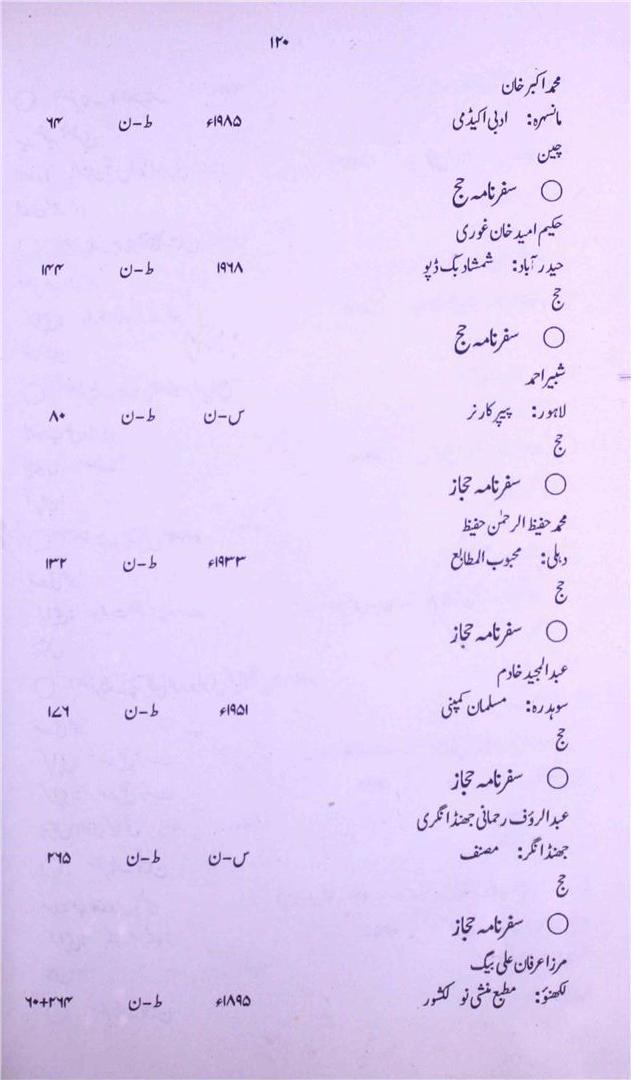 ۱۲۰
محمد اکبر خان
مانسہرہ: ادبی اکیڈمی ۱۹۸۵ء ط-ن ۶۴
چین
○ سفرنامہ حج
حکیم امید خان غوری
حیدر آباد: شمشاد بک ڈپو ۱۹۶۸ ط-ن ۱۴۴
حج
○ سفرنامہ حج
شبیر احمد
لاہور: پیپر کارنر س-ن ط-ن ۸۰
حج
○ سفرنامہ حجاز
محمد حفیظ الرحمٰن حفیظ
دہلی: محبوب المطابع ۱۹۳۳ء ط-ن ۱۳۲
حج
○ سفرنامہ حجاز
عبدالمجید خادم
سوہدرہ: مسلمان کمپنی ۱۹۵۱ء ط-ن ۱۷۶
حج
○ سفرنامہ حجاز
عبدالرؤف رحمانی جھنڈانگری
جھنڈانگر: مصنف س-ن ط-ن ۲۶۵
حج
○ سفرنامہ حجاز
مرزا عرفان علی بیگ
لکھنؤ: مطبع منشی نو لکشور ۱۸۹۵ء ط-ن ۲۶۴+۶۰